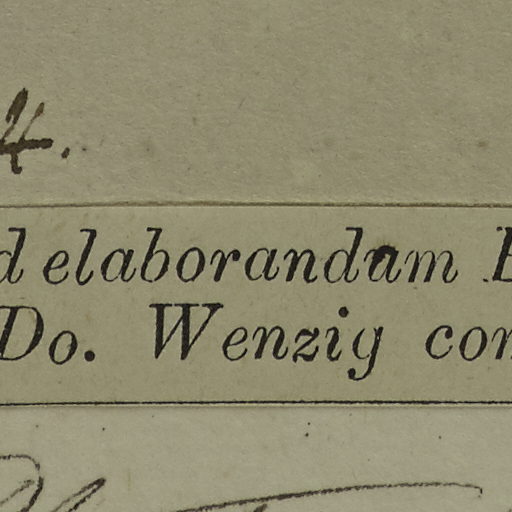 4.
d elaborandam
Do. Wenzig con